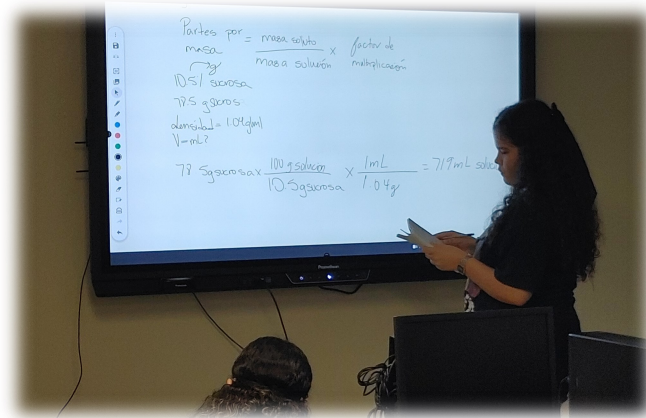 Partes por masa = masa soluto / masa solución × factor de multiplicación
g
10.5% sucrosa
78.5 g sucros
densidad = 1.04 g/ml
V = mL?
78.5 g sucrosa × 100 g solución / 10.5 g sucrosa × 1 mL / 1.04 g = 719 mL soluc
Promethean